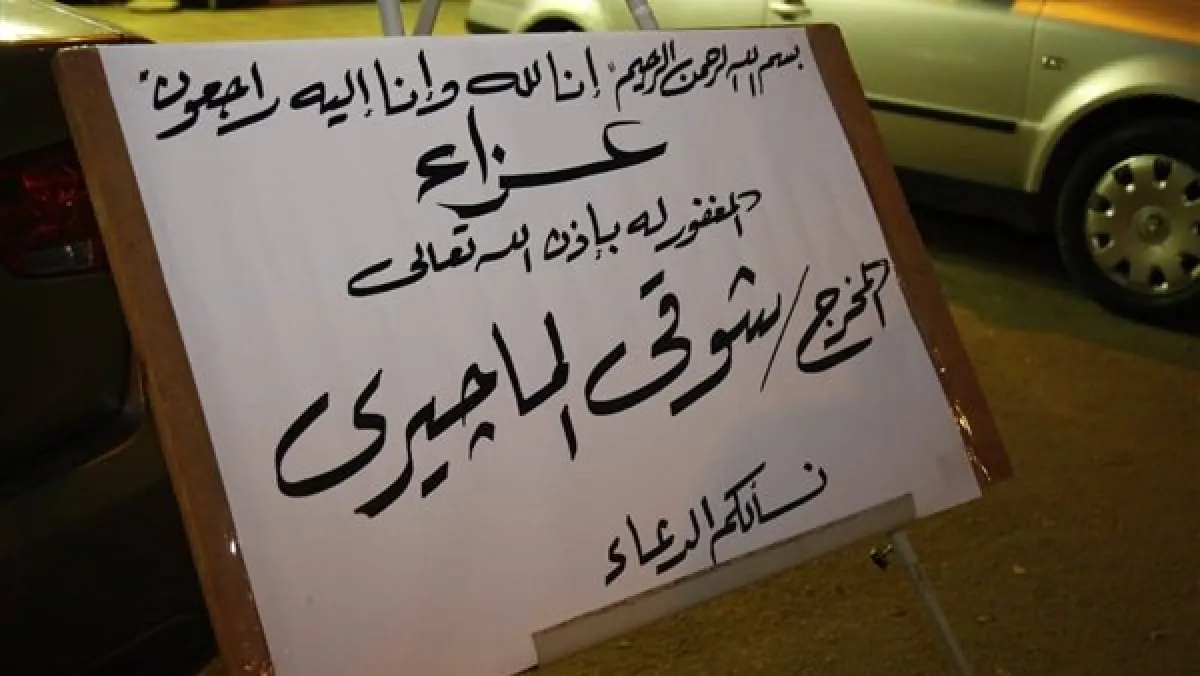 بسم الله الرحمن الرحيم "إنا لله وإنا إليه راجعون"
عزاء
المغفور له بإذن الله تعالى
المخرج / شوقى الماجيرى
نسألكم الدعاء